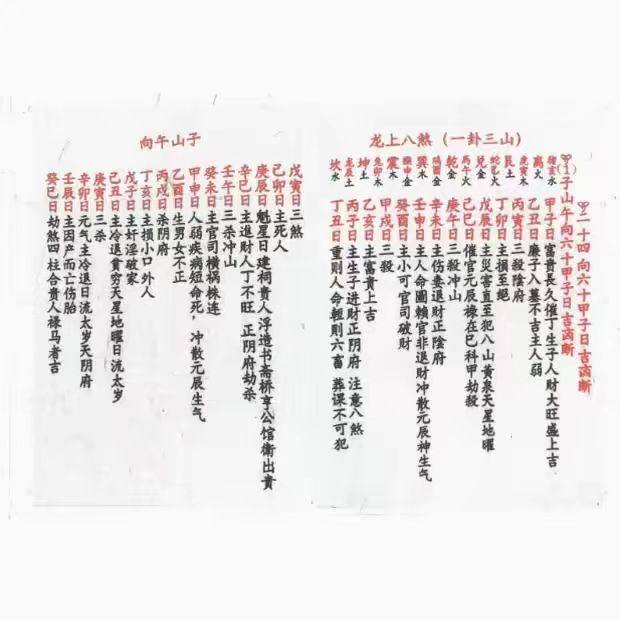 二十四向六十甲子日吉凶断
(1)子山午向六十甲子日吉凶断
龙上八煞（一卦三山）
猪亥木
离火
虎寅木
艮土
蛇巳火
兑金
马午火
乾金
鸡酉金
巽木
猴申金
震木
兔卯木
坤土
龙辰土
坎水
甲子日富貴長久催丁生子人财大旺盛上吉
乙丑日廉子入墓不吉主人弱
丙寅日三殺陰府
丁卯日主損至絕
戊辰日主災害直至犯八山黄泉天星地曜
己巳日催官元辰祿在巳科甲劫殺
庚午日三殺冲山
辛未日主伤妻退财正陰府
壬申日主人命圖賴官非退财冲散元辰神生气
癸酉日主小可官司破财
甲戌日三殺
乙亥日主富貴上吉
丙子日主生子进财正阴府 注意八煞
丁丑日重则人命輕則六畜 葬课不可犯
子山午向
戊寅日三煞
己卯日主死人
庚辰日魁星日建祠贵人浮造书斋桥亭公馆衛出貴
辛巳日主進财人丁不旺 正阴府劫杀
壬午日三杀冲山
癸未日主官司横祸株连
甲申日人弱疾病短命死， 冲散元辰生气
乙酉日生男女不正
丙戌日杀阴府
丁亥日主損小口外人
戊子日主奸淫破家
己丑日主冷退貧穷天星地曜日流太岁
庚寅日三杀
辛卯日元气主冷退日流太岁天阴府
壬辰日主因产而亡伤胎
癸巳日劫煞四柱合贵人禄马者吉